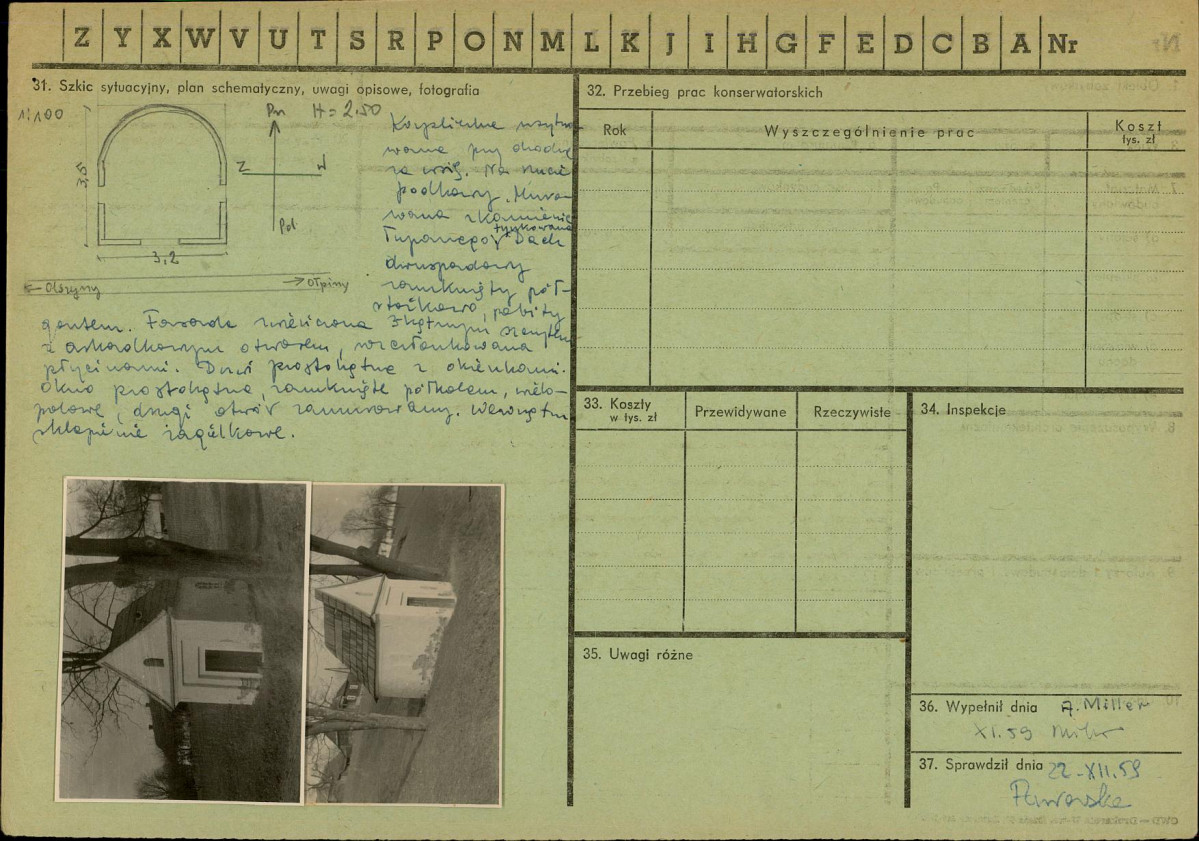 Z Y X W V U T S R P O N M L K J I H G F E D C B A Nr
31. Szkic sytuacyjny, plan schematyczny, uwagi opisowe, fotografia
1:100
Pn H = 2.50
Z W
Pol
3,5
3,2
← Olszyny → Ołpiny
Kapliczka usytuo
wana przy drodze
za wsią. Na rzucie
podkowy. Muro-
wana z kamienia
łupanego tynkowana Dach
dwuspadowy
zamknięty pół-
stożkowo, pobity
gontem. Fasada zwieńczona szczytem
z arkadkowym otworem, rozczłonkowana
płycinami. Drzwi prostokątne z okienkami.
Okno prostokątne, zamknięte półkolem, wielo-
polowe, drugi otwór zamurowany. Wewnątrz
sklepienie żagielkowe.
32. Przebieg prac konserwatorskich
Rok
Wyszczególnienie prac
Koszt
tys. zł
33. Koszty
w tys. zł
Przewidywane
Rzeczywiste
34. Inspekcje
35. Uwagi różne
36. Wypełnił dnia A. Miller
XI.59
37. Sprawdził dnia 22-XII.59